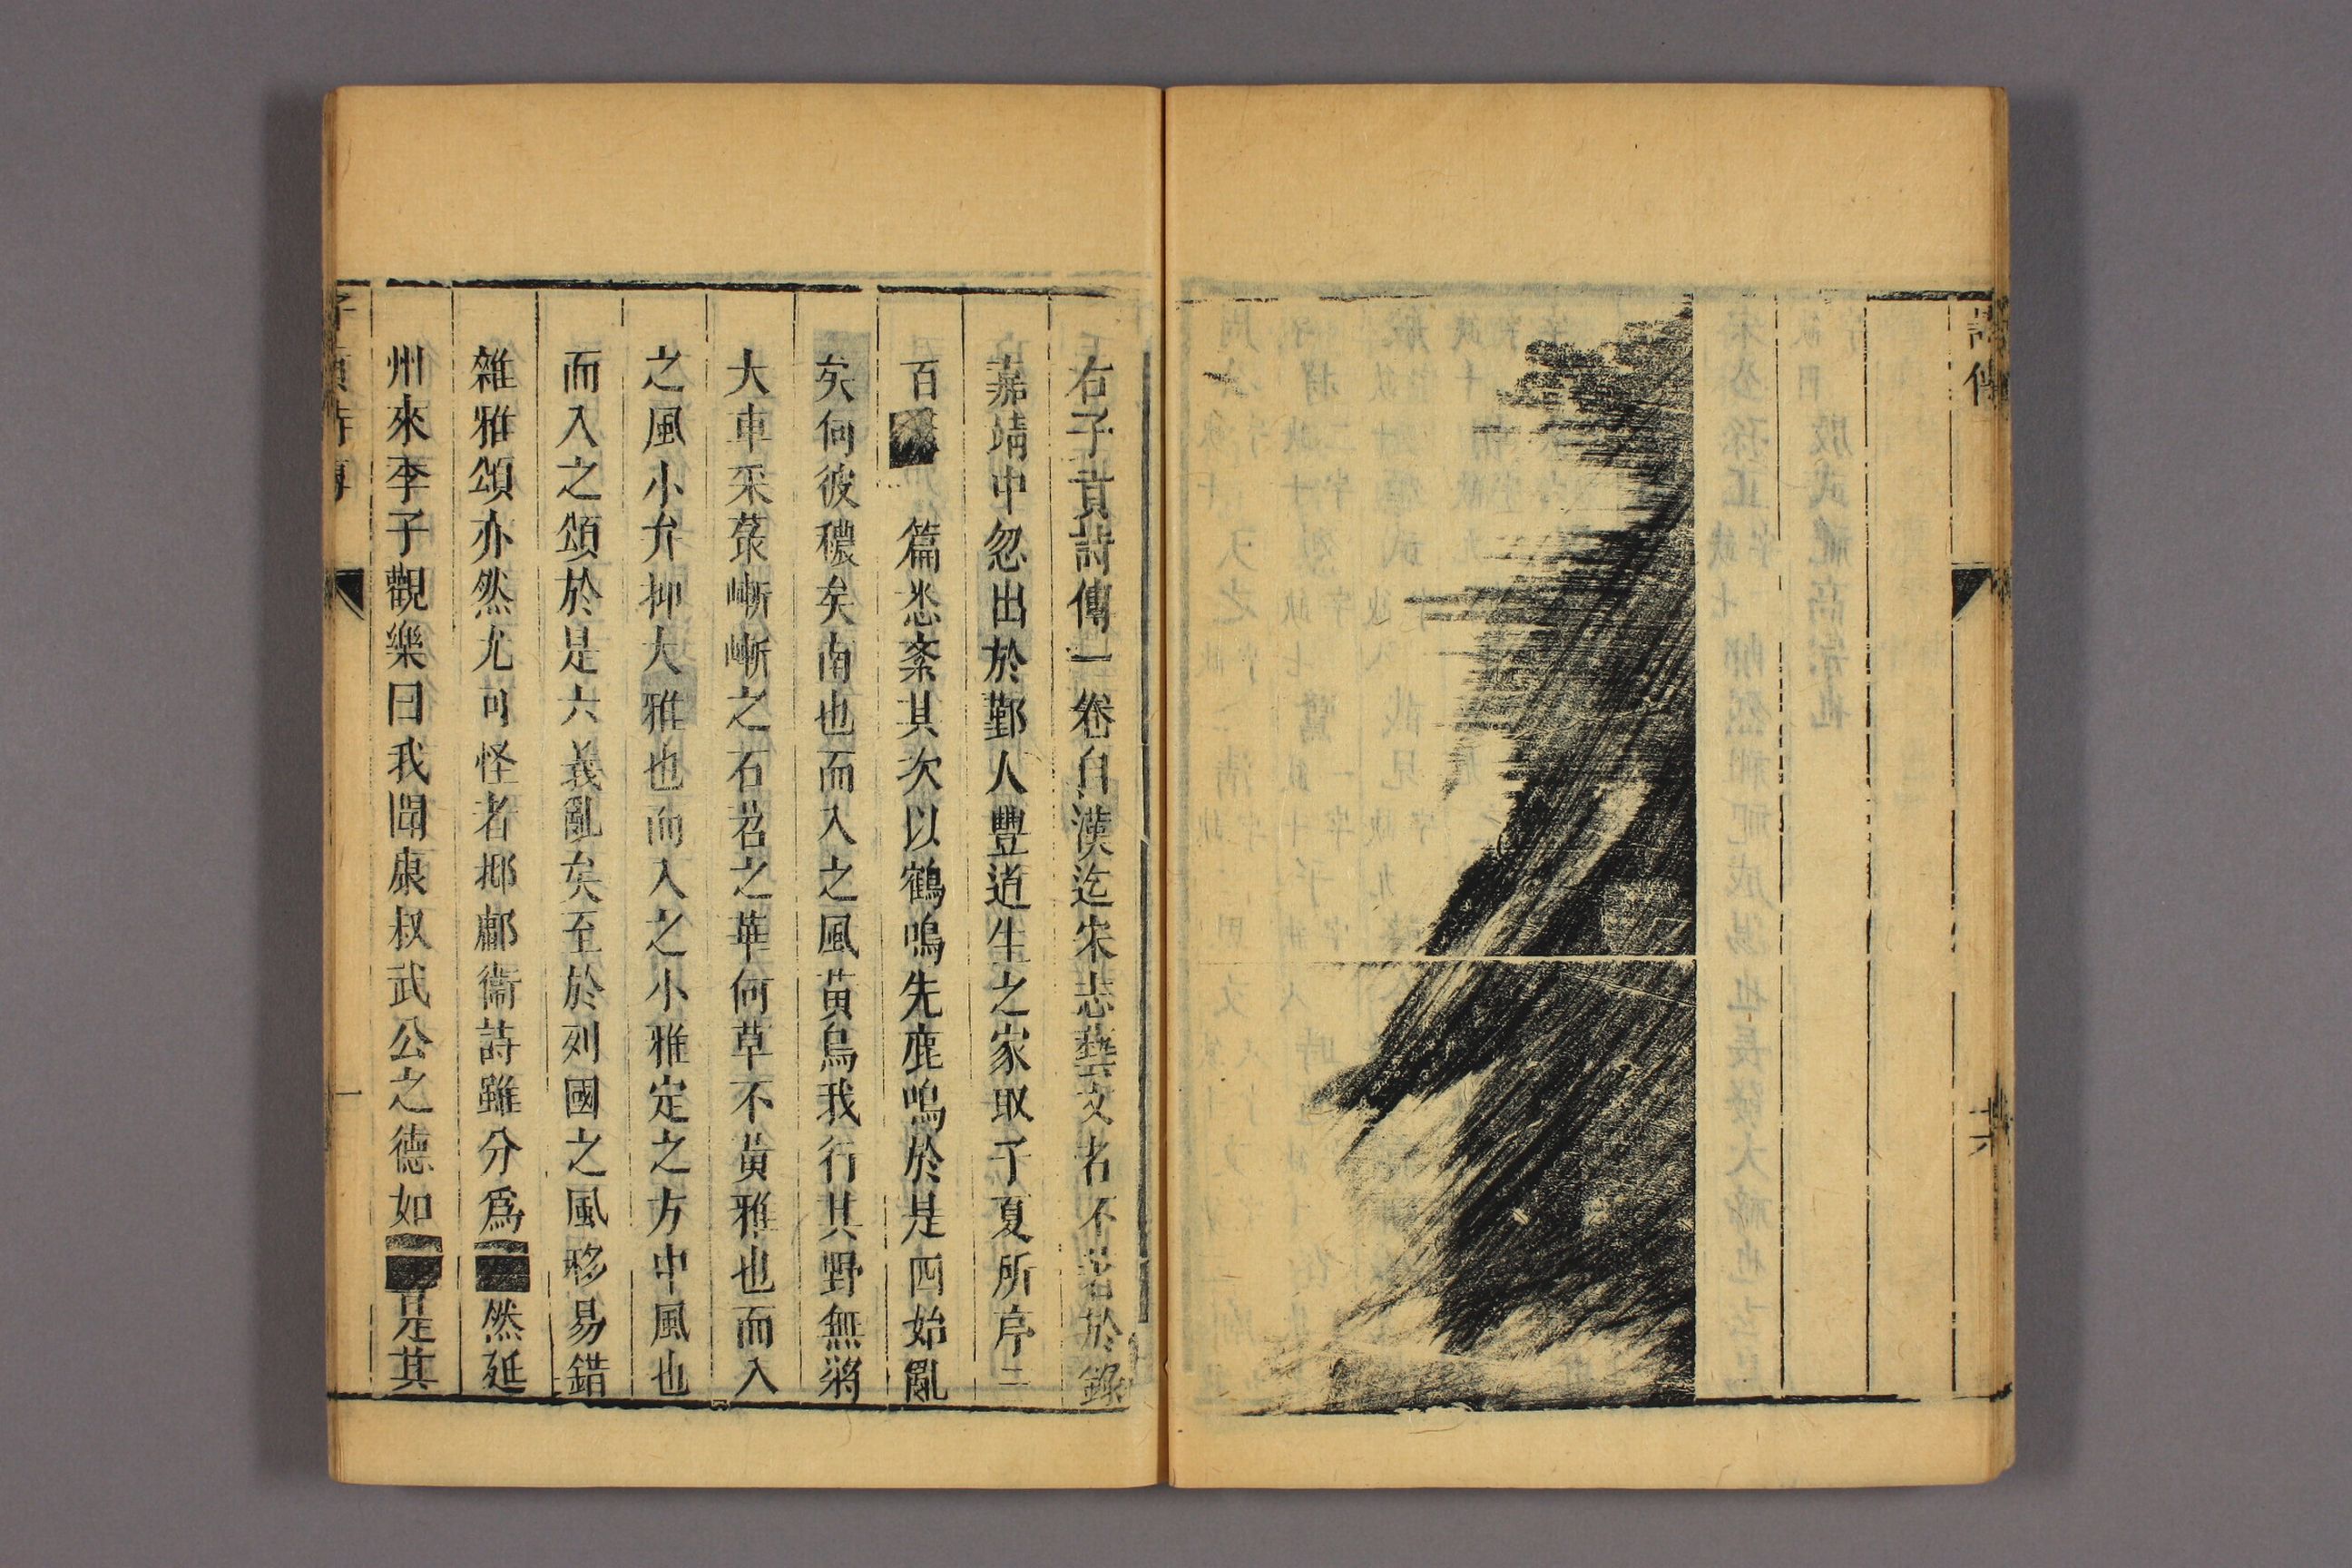 詩傳
右子貢詩傳一卷自漢迄宋志藝文者不著於錄
嘉靖中忽出於鄞人豐道生之家取子夏所序三
百 篇悉紊其次以鶴鳴先鹿鳴於是四始亂
矣何彼穠矣南也而入之風黃鳥我行其野無將
大車采菽嶄嶄之石苕之華何草不黃雅也而入
之風小弁抑大雅也而入之小雅定之方中風也
而入之頌於是六義亂矣至於列國之風移易錯
雜雅頌亦然尤可怪者邶鄘衞詩雖分爲 然延
州來季子觀樂曰我聞康叔武公之德如 是其
一